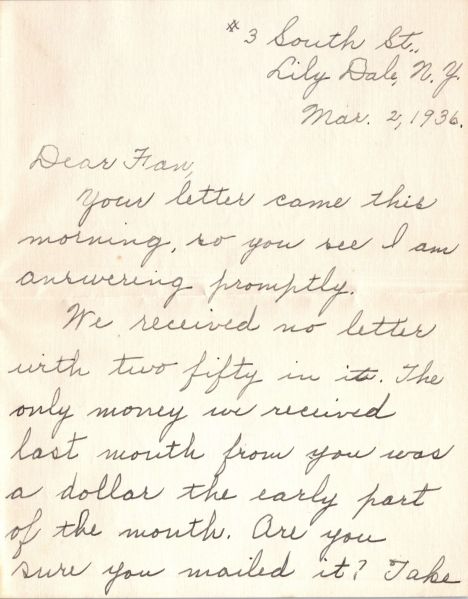 #3 South St.,
Lily Dale, N.Y.
Mar. 2, 1936.
Dear Fan,
Your letter came this
morning, so you see I am
answering promptly.
We received no letter
with two fifty in it. The
only money we received
last month from you was
a dollar the early part
of the month. Are you
sure you mailed it? Take